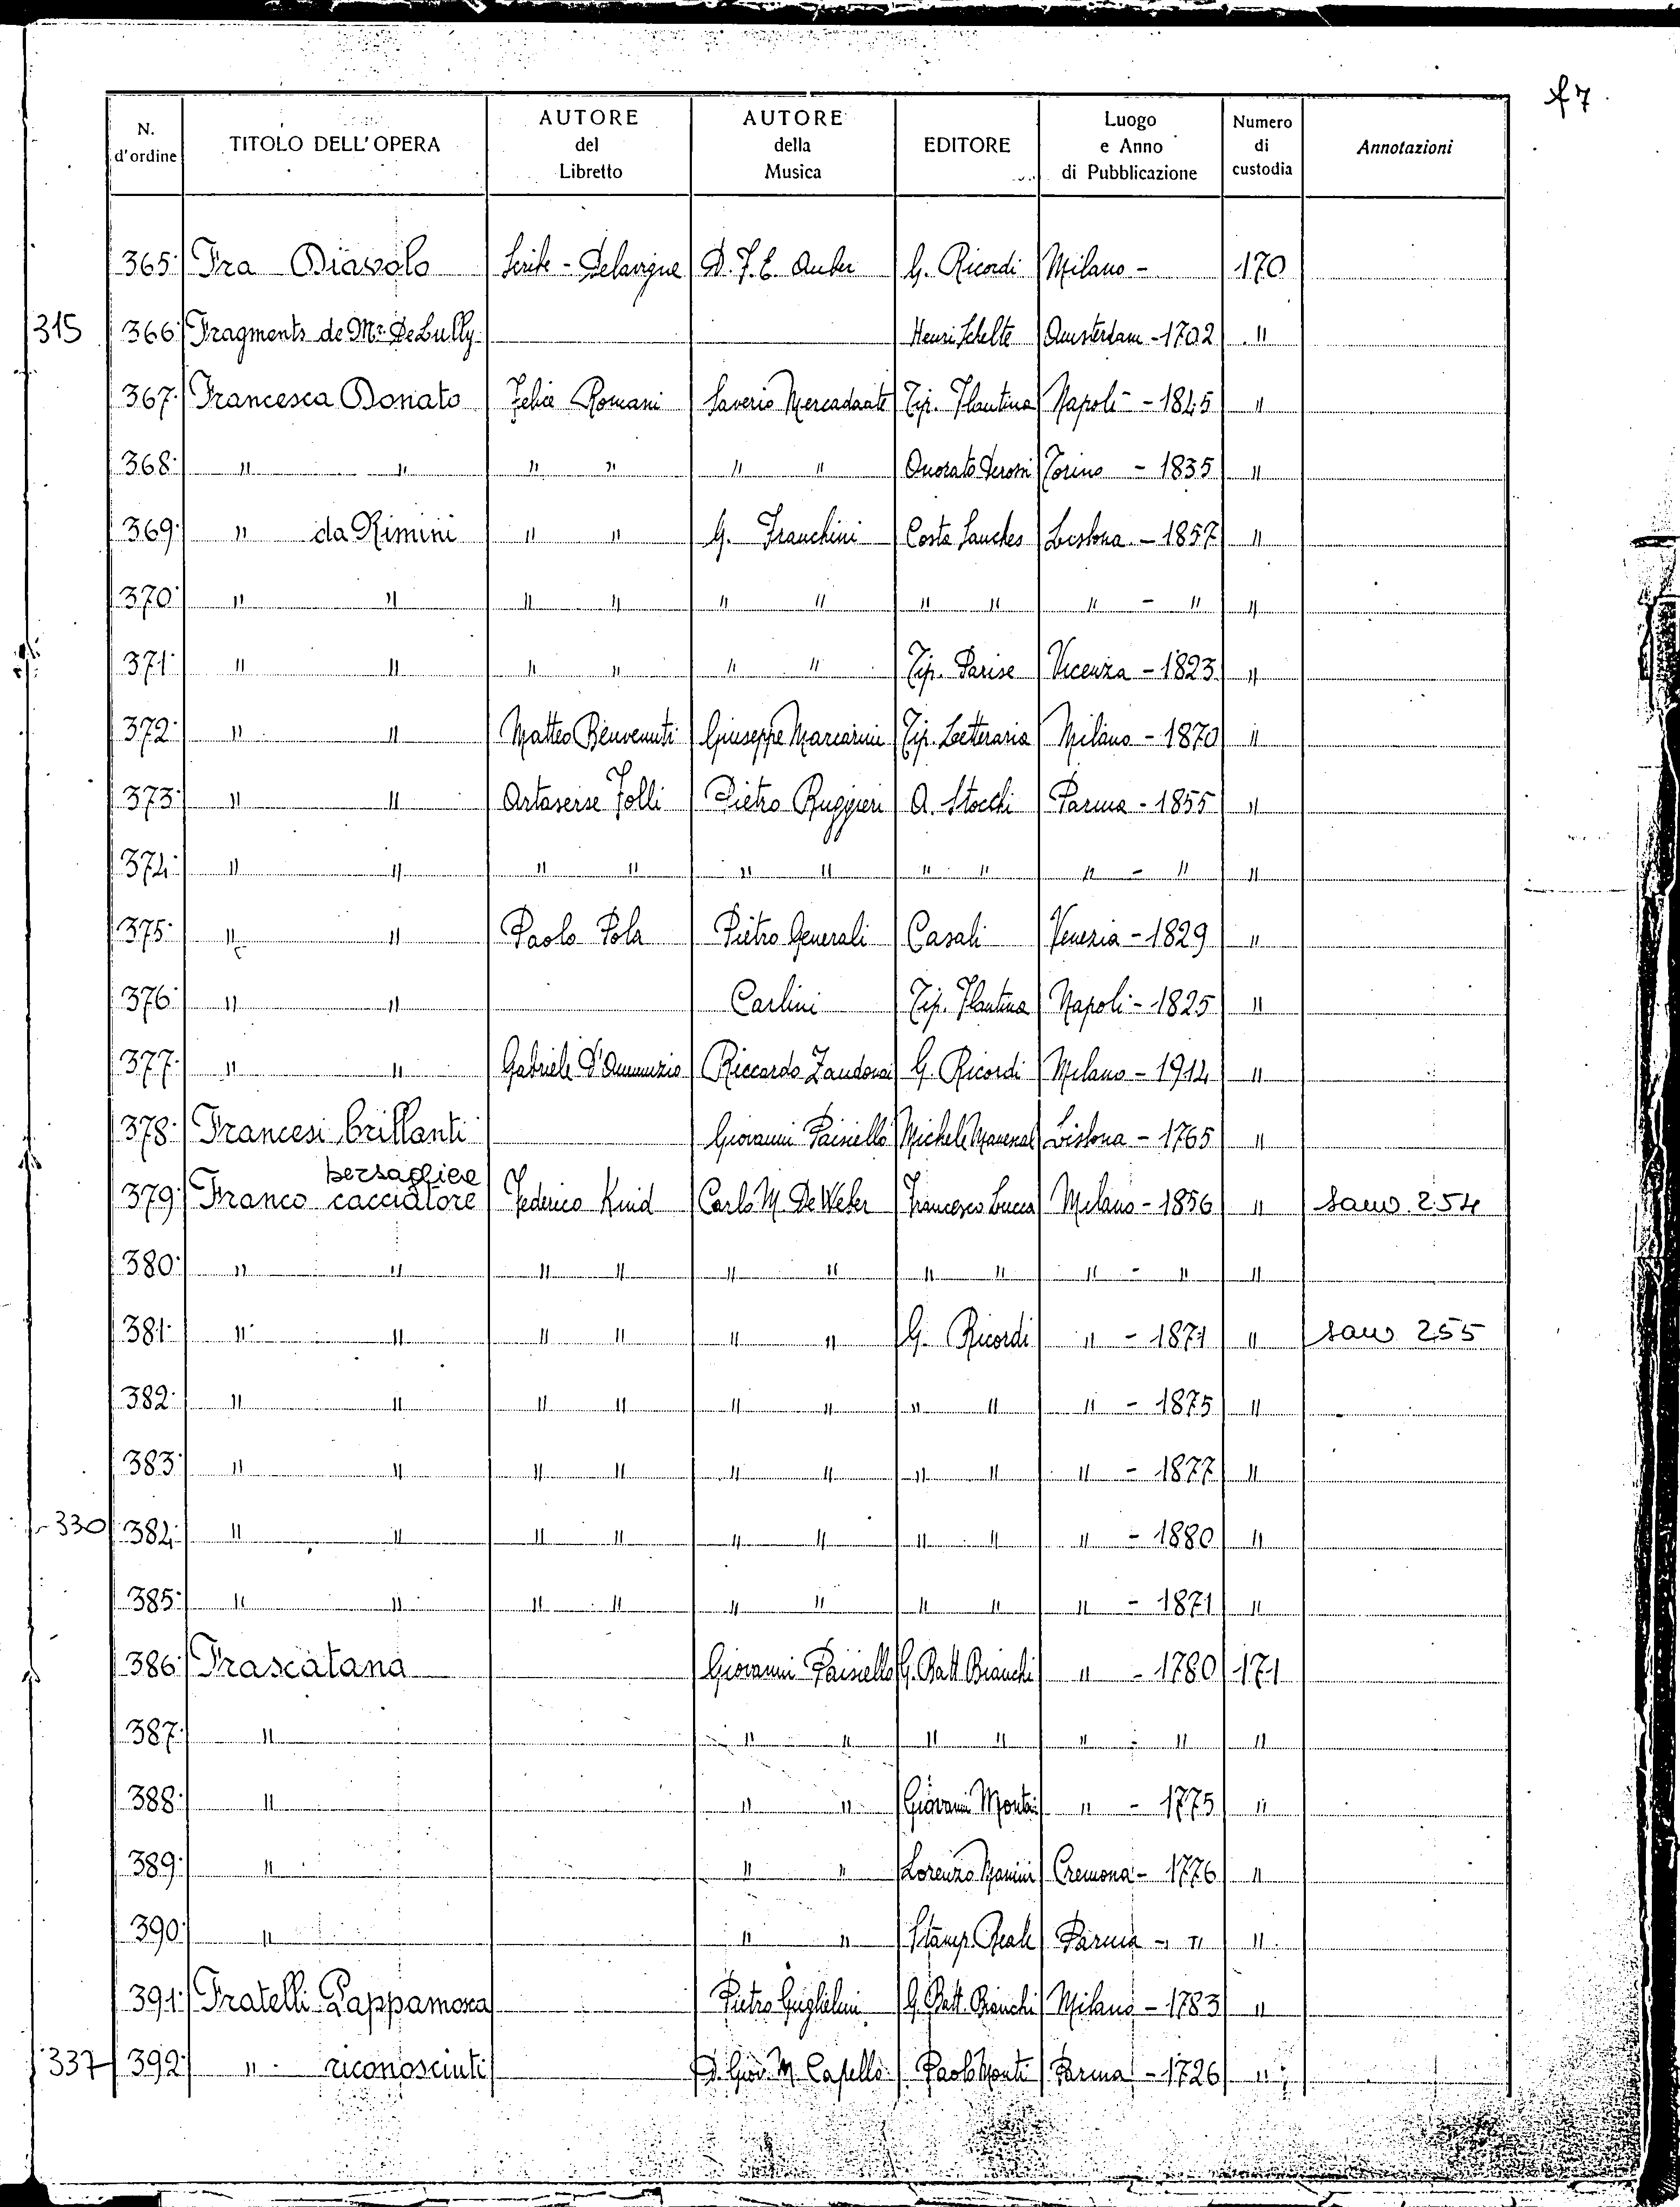 f7
N. d'ordine | TITOLO DELL'OPERA | AUTORE del Libretto | AUTORE della Musica | EDITORE | Luogo e Anno di Pubblicazione | Numero di custodia | Annotazioni
365 | Fra Diavolo | Scribe - Delavigne | D. F. E. Auber | G. Ricordi | Milano - | 170
315 | 366 | Fragments de Mr. De Lully | | | Henri Schelte | Amsterdam - 1702 | "
367 | Francesca Donato | Felice Romani | Saverio Mercadante | Tip. Flautina | Napoli - 1845 | "
368 | " " | " " | " " | Onorato Derossi | Torino - 1835 | "
369 | " da Rimini | " " | G. Franchini | Costa Sanches | Lisbona - 1857 | "
370 | " " | " " | " " | " " | " - " | "
371 | " " | " " | " " | Tip. Parise | Vicenza - 1823 | "
372 | " " | Matteo Benvenuti | Giuseppe Marcarini | Tip. Letteraria | Milano - 1870 | "
373 | " " | Artaserse Folli | Pietro Ruggieri | A. Stocchi | Parma - 1855 | "
374 | " " | " " | " " | " " | " - " | "
375 | " " | Paolo Pola | Pietro Generali | Casali | Venezia - 1829 | "
376 | " " | | Carlini | Tip. Flautina | Napoli - 1825 | "
377 | " " | Gabriele D'Annunzio | Riccardo Zandonai | G. Ricordi | Milano - 1914 | "
378 | Francesi brillanti | | Giovanni Paisiello | Michele | Lisbona - 1765 | "
bersagliere
379 | Franco cacciatore | Federico Kind | Carlo M. De Weber | Francesco Lucca | Milano - 1856 | " | 254
380 | " " | " " | " " | " " | " - " | "
381 | " " | " " | " " | G. Ricordi | " - 1871 | " | 255
382 | " " | " " | " " | " " | " - 1875 | "
383 | " " | " " | " " | " " | " - 1877 | "
330 | 384 | " " | " " | " " | " " | " - 1880 | "
385 | " " | " " | " " | " " | " - 1871 | "
386 | Frascatana | | Giovanni Paisiello | G. Batt. Bianchi | " - 1780 | 171
387 | " | | " " | " " | " - " | "
388 | " | | " " | Giovanni Montani | " - 1775 | "
389 | " | | " " | Lorenzo Manini | Cremona - 1776 | "
390 | " | | " " | Stamp. Reale | Parma - " | "
391 | Fratelli Pappamosca | | Pietro Guglielmi | G. Batt. Bianchi | Milano - 1783 | "
337 | 392 | " riconosciuti | | D. Giov. M. Capello | Paolo Monti | Parma - 1726 | "